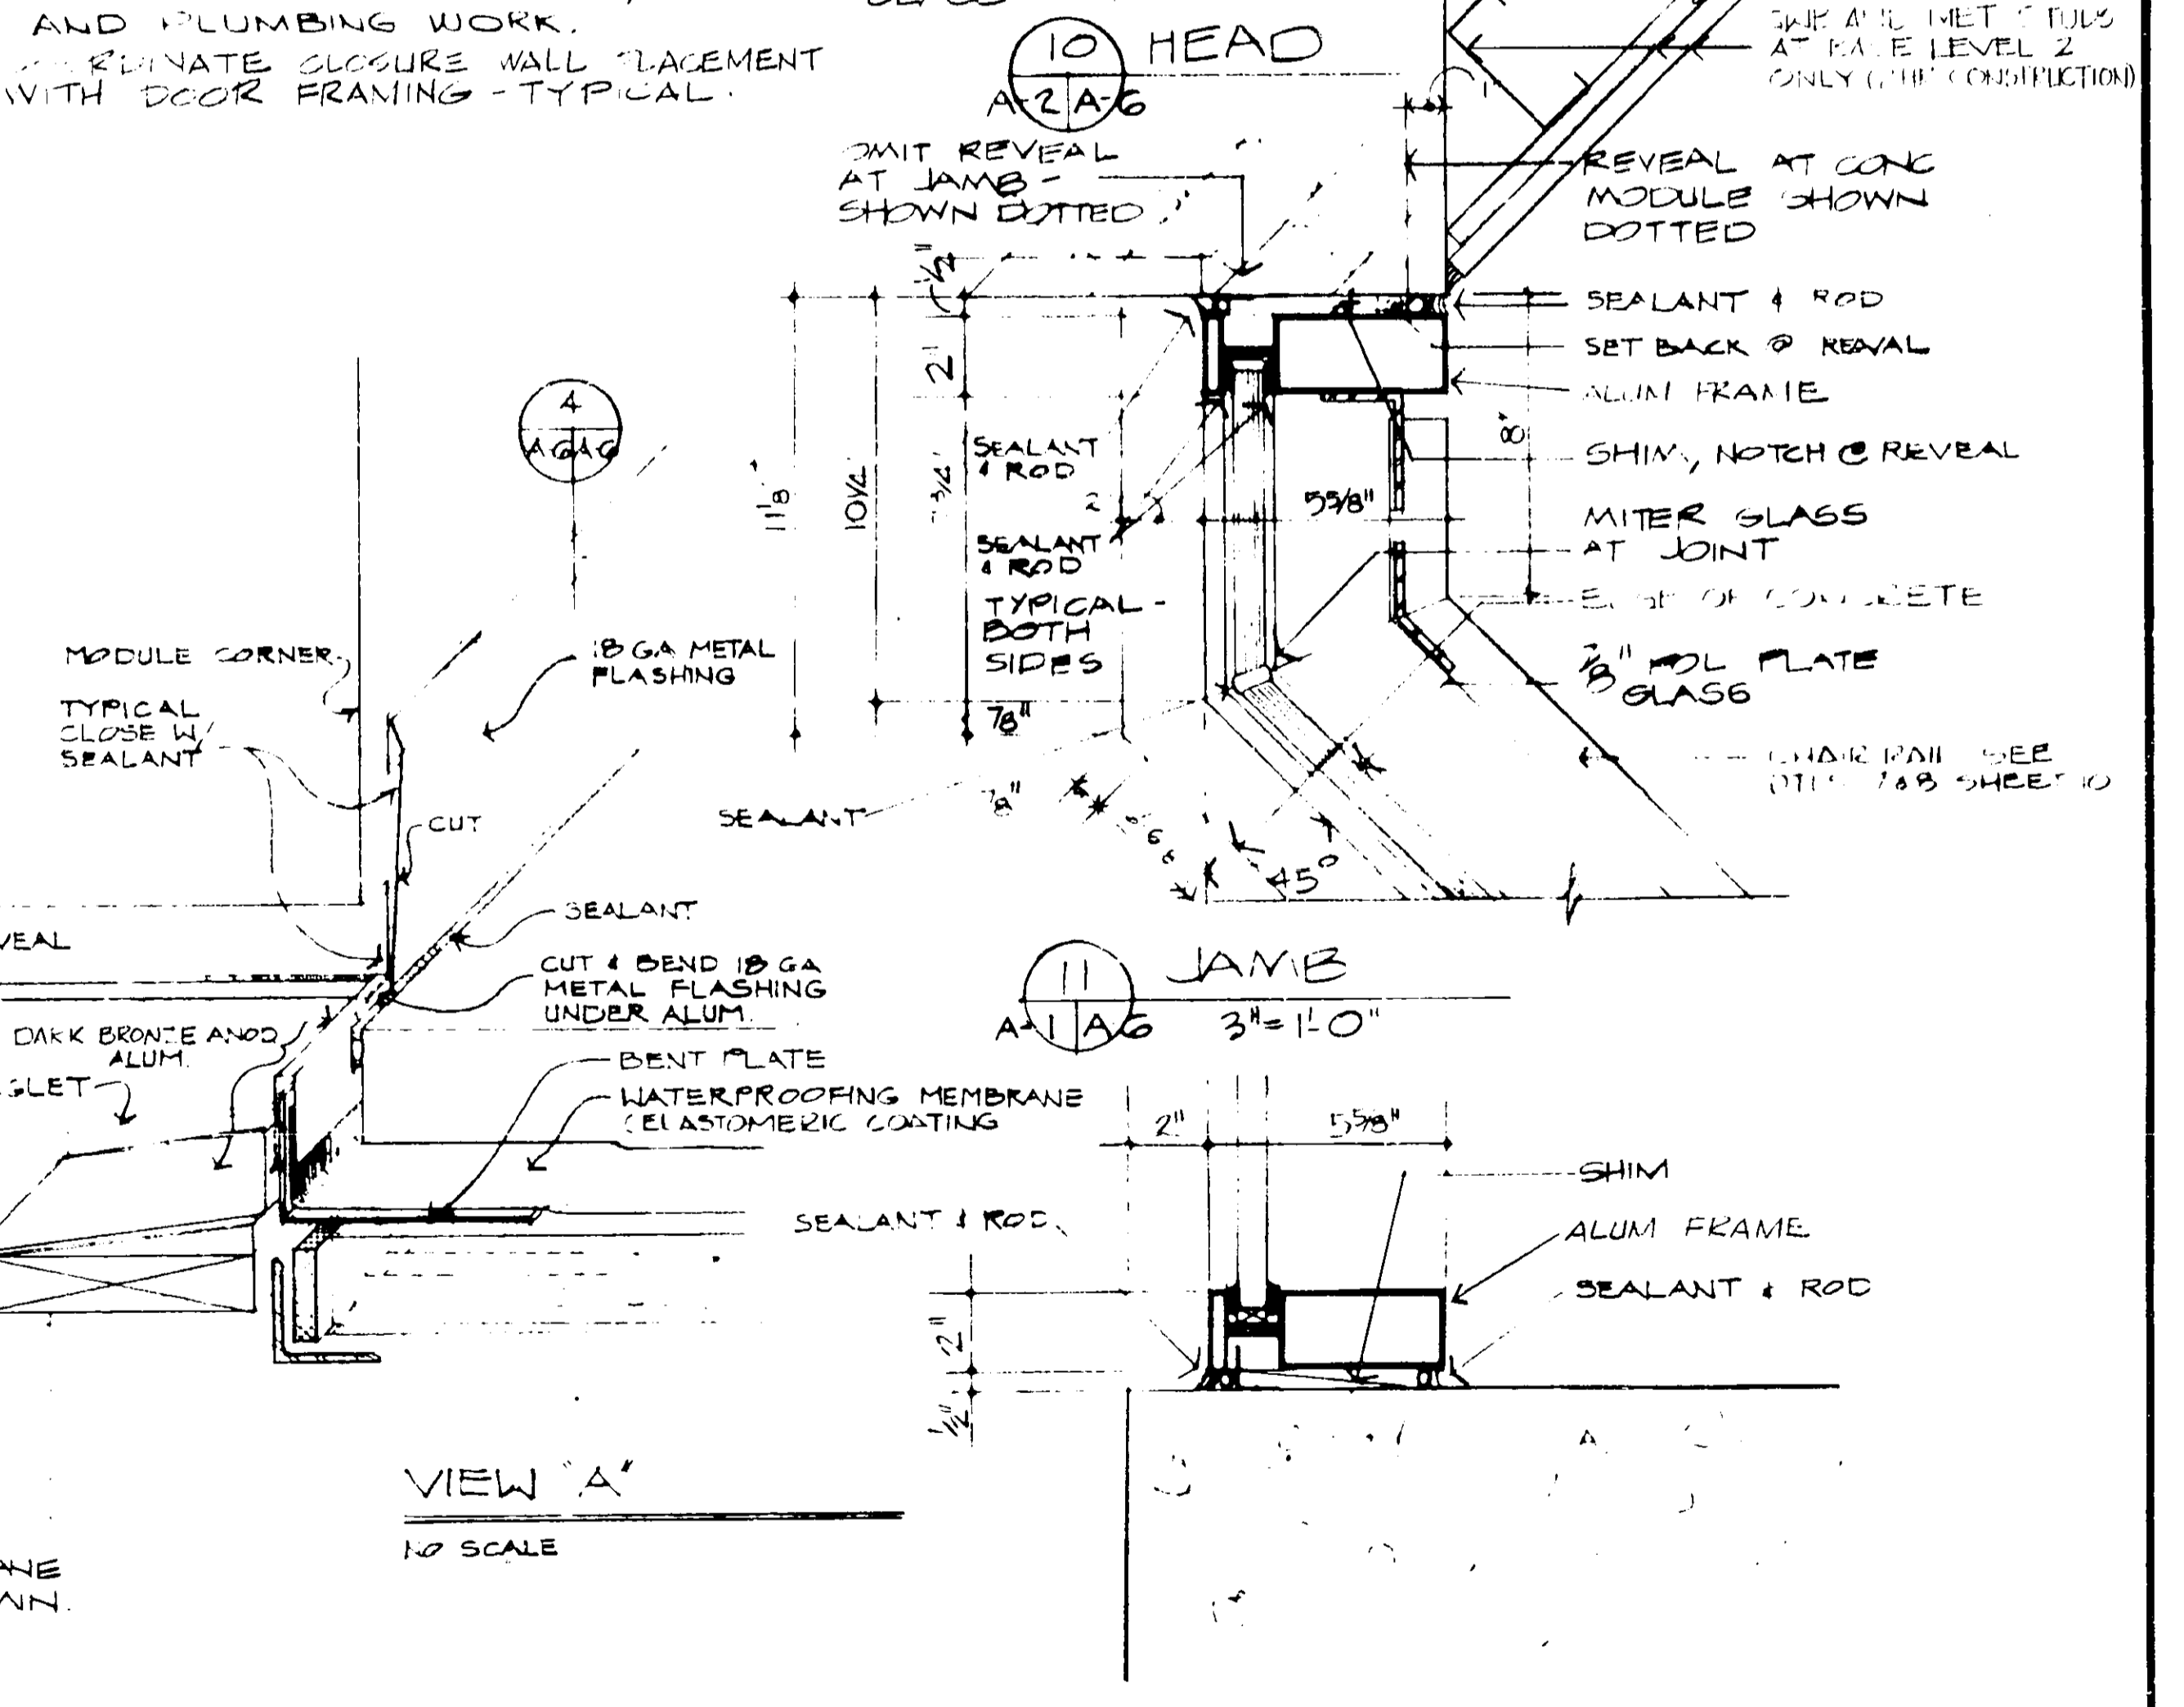 AND PLUMBING WORK.
CLOSURE WALL PLACEMENT
WITH DOOR FRAMING - TYPICAL.
10 HEAD
A-2 A-6
AT BASE LEVEL 2
ONLY
1"
OMIT REVEAL
AT JAMB -
SHOWN DOTTED
REVEAL AT CONC
MODULE SHOWN
DOTTED
SEALANT & ROD
SET BACK @ REAVAL
ALUM FRAME
SHIM, NOTCH @ REVEAL
MITER GLASS
AT JOINT
EDGE OF CONCRETE
7/8" POL PLATE
GLASS
CHAIR RAIL SEE
SHEET 10
1/2"
2"
11 1/8"
10 1/4"
8"
SEALANT
& ROD
2
5 5/8"
SEALANT
& ROD
TYPICAL -
BOTH
SIDES
7/8"
7/8"
SEALANT
45°
4
A-6 A-6
MODULE CORNER
18 GA METAL
FLASHING
TYPICAL
CLOSE W/
SEALANT
CUT
SEALANT
VEAL
CUT & BEND 18 GA
METAL FLASHING
UNDER ALUM.
DARK BRONZE ANOD
ALUM.
GLET
BENT PLATE
WATERPROOFING MEMBRANE
(ELASTOMERIC COATING
11 JAMB
A-1 A-6 3"=1'-0"
2" 5 5/8"
SHIM
SEALANT & ROD
ALUM FRAME
SEALANT & ROD
2"
1/2"
VIEW "A"
NO SCALE
ANE
WN.